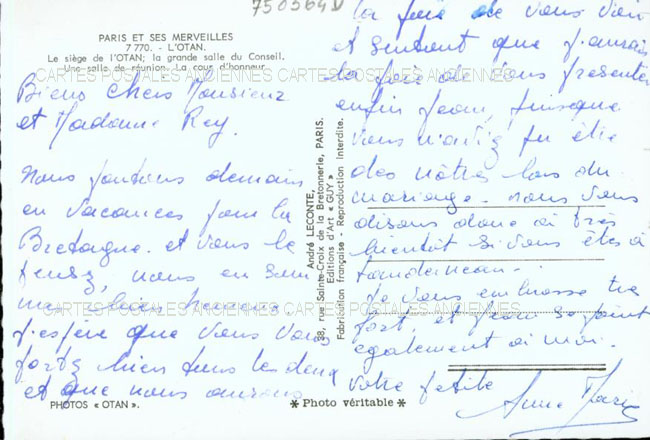 750364V
PARIS ET SES MERVEILLES
7 770. - L'OTAN.
Le siège de l'OTAN; la grande salle du Conseil.
Une salle de réunion. La cour d'honneur.
CARTES POSTALES ANCIENNES CARTES POSTALES ANCIENNES
Biens chers Monsieur
et Madame Rey.
Nous partons demain
en vacances pour la
Bretagne. et vous le
pensez, nous en sommes
heureux.
J'espère que vous vous
portez bien tous les deux
et que nous aurons
PHOTOS « OTAN ».
André LECONTE,
38, rue Sainte-Croix de la Bretonnerie, PARIS.
Editions d'Art « GUY »
Fabrication française - Reproduction Interdite.
la joie de vous voir
et surtout que j'aurais
la joie de vous présenter
enfin Jean, puisque
vous n'aviez pu être
des nôtres lors du
mariage. nous vous
disons donc à très
bientôt si vous êtes à
CARTES POSTALES ANCIENNES CARTES POSTALES ANCIENNES
Je vous embrasse très
fort et Jean se joint
également à moi.
votre petite
Anne Marie
* Photo véritable *